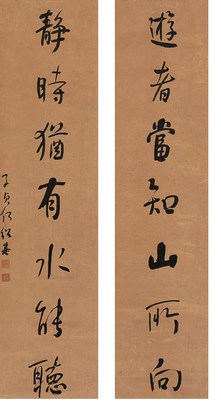 遊者當知山所向
靜時猶有水能聽
子貞何紹基